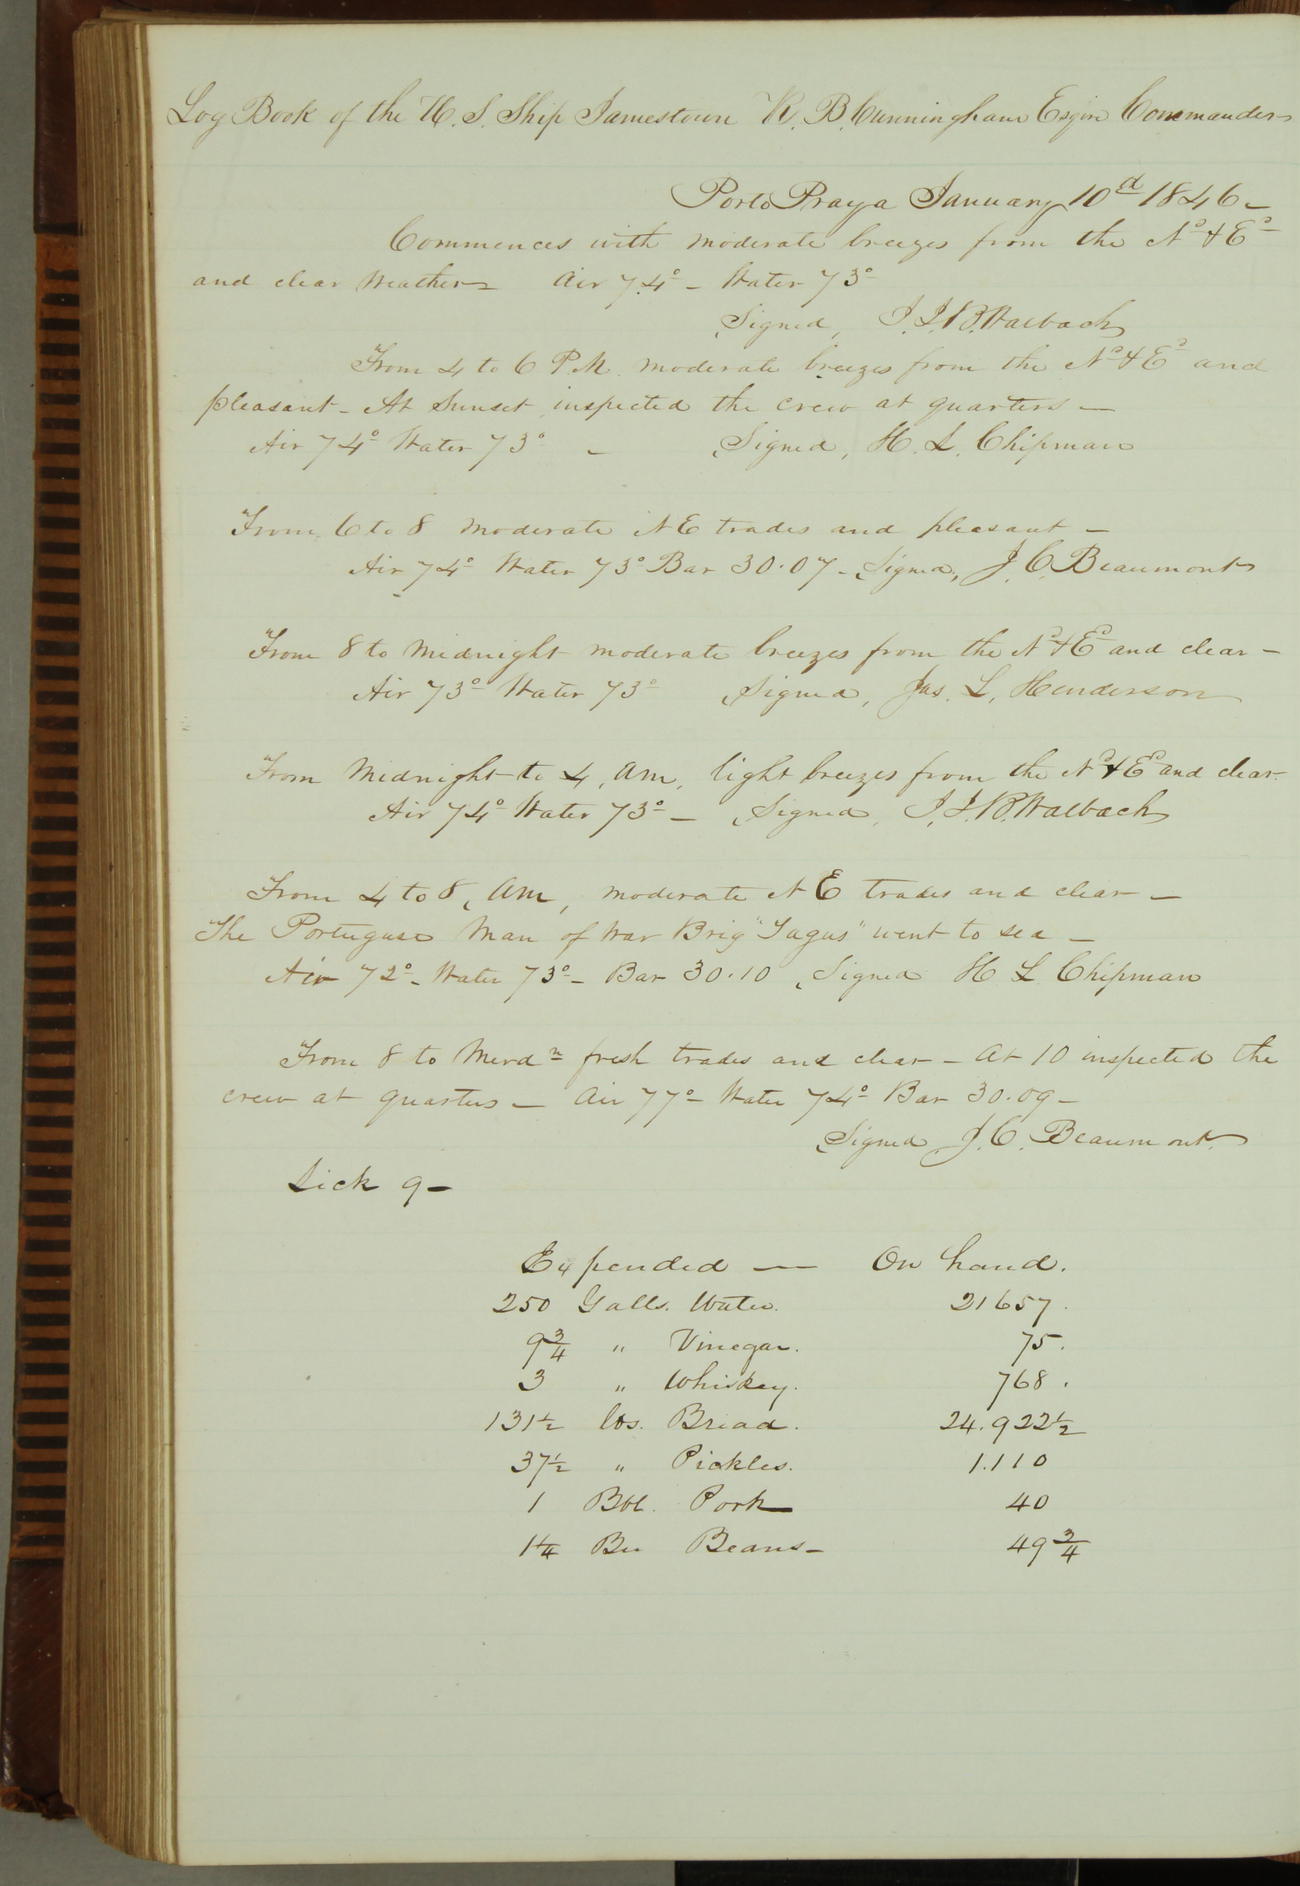 Log Book of the U. S. Ship Jamestown R. B. Cunningham Esqire Commander
Porto Praya January 10d 1846 -
Commences with moderate breezes from the Nd & Ed
and clear Weather - Air 74° - Water 73°
Signed, J. J. B. Walbach
From 4 to 6 P.M. moderate breezes from the Nd & Ed and
pleasant - At Sunset inspected the crew at quarters -
Air 74° Water 73° - Signed, H. L. Chipman
From 6 to 8 moderate N E trades and pleasant -
Air 74° Water 73° Bar 30.07 - Signed, J. C. Beaumont
From 8 to Midnight moderate breezes from the Nd & Ed and clear -
Air 73° Water 73° Signed, Jas. L. Henderson
From Midnight to 4, am, light breezes from the Nd & Ed and clear.
Air 74° Water 73° - Signed, J. J. B. Walbach
From 4 to 8, am, moderate N E trades and clear -
The Portuguese Man of War Brig "Tagus" went to sea -
Air 72° - Water 73° - Bar 30.10 Signed H L Chipman
From 8 to Merdn fresh trades and clear - At 10 inspected the
crew at quarters - Air 77° - Water 74° Bar 30.09 -
Signed J. C. Beaumont.
Sick 9 -
Expended — On hand.
250 Galls. Water. 21657.
9 3/4 " Vinegar. 75.
3 " Whiskey. 768.
131 1/2 lbs. Bread. 24.922 1/2
37 1/2 " Pickles. 1.110
1 Bbl. Pork 40
1 1/4 Bu Beans - 49 3/4